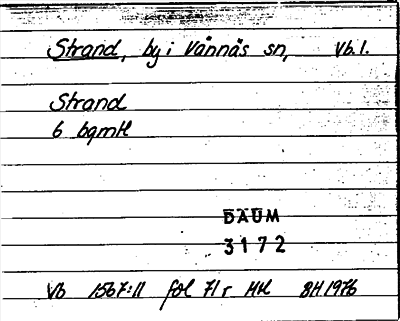 Strand, by i Vännäs sn, Vb. l.
Strand
6 bqmtl
DAUM
3172
Vb 1567:11 fol 71r HKl 8H 1976